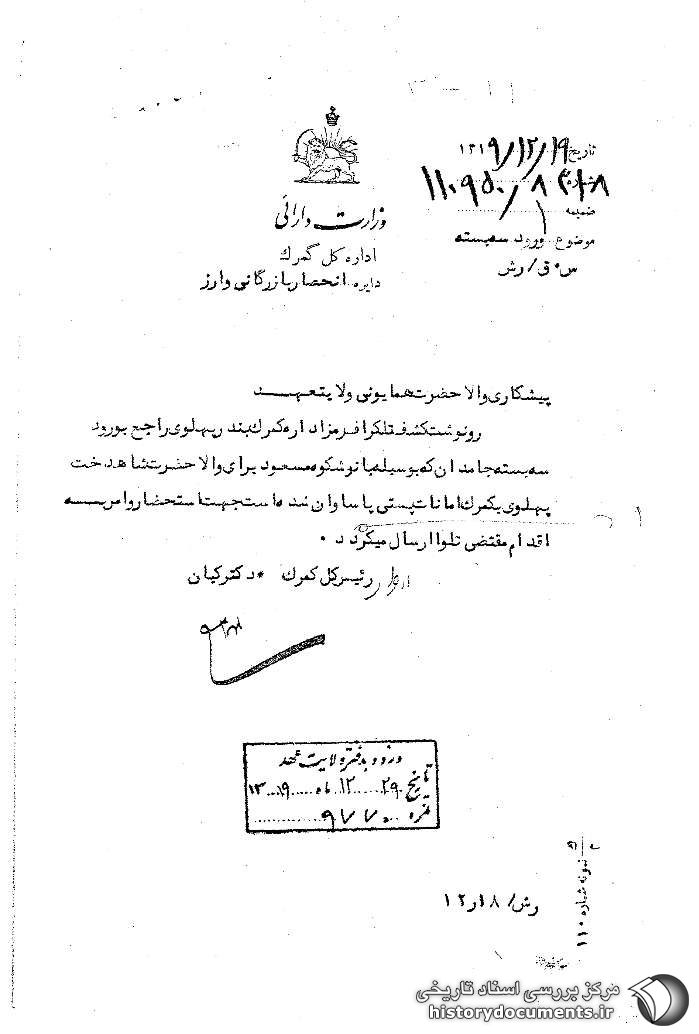 تاریخ ۱۳۱۹/۱۲/۱۹
شماره ۱۱۰۹۵۰/۸
ضمیمه
موضوع ورود سه بسته
س۰ق/رش
وزارت دارائی
اداره کل گمرك
دایره انحصار بازرگانی وارز
پیشکاری والاحضرت همایونی ولایتعهد
رونوشت کشف تلگراف رمز اداره گمرك بندر پهلوی راجع بورود
سه بسته جامدان که بوسیله بانو شکوه مسعود برای والاحضرت شاهدخت
پهلوی بگمرك امانات پستی پاساوان شده است جهت استحضار وامر به
اقدام مقتضی تلوا ارسال میگردد ۰
از طرف رئیس کل گمرك ٭ دکتر کیان
ورود بدفتر ولایت عهد
تاریخ ۲۹ ماه ۱۲ ۱۳۱۹
نمره ۹۷۷۰
رش/ ۱۸ر۱۲
نمونه شماره ۱۱۰
مرکز بررسی اسناد تاریخی
historydocuments.ir